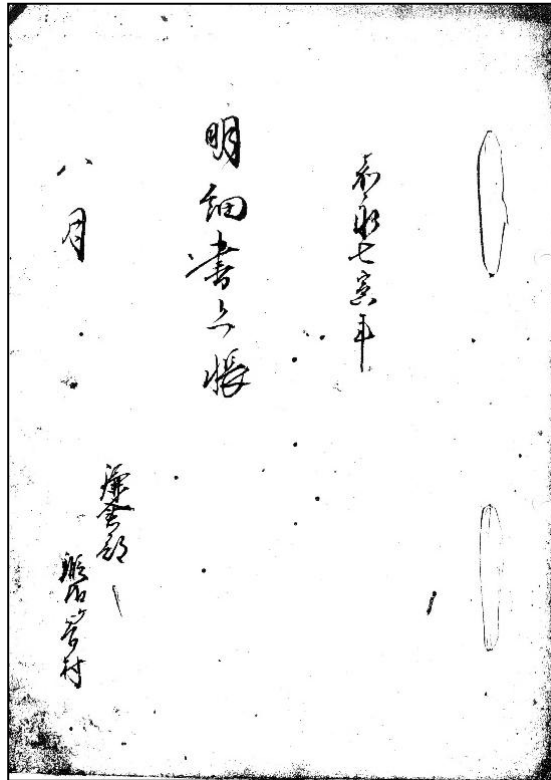 嘉永七寅年
明細書上帳
八月
鎌倉郡
鍛冶ヶ谷村